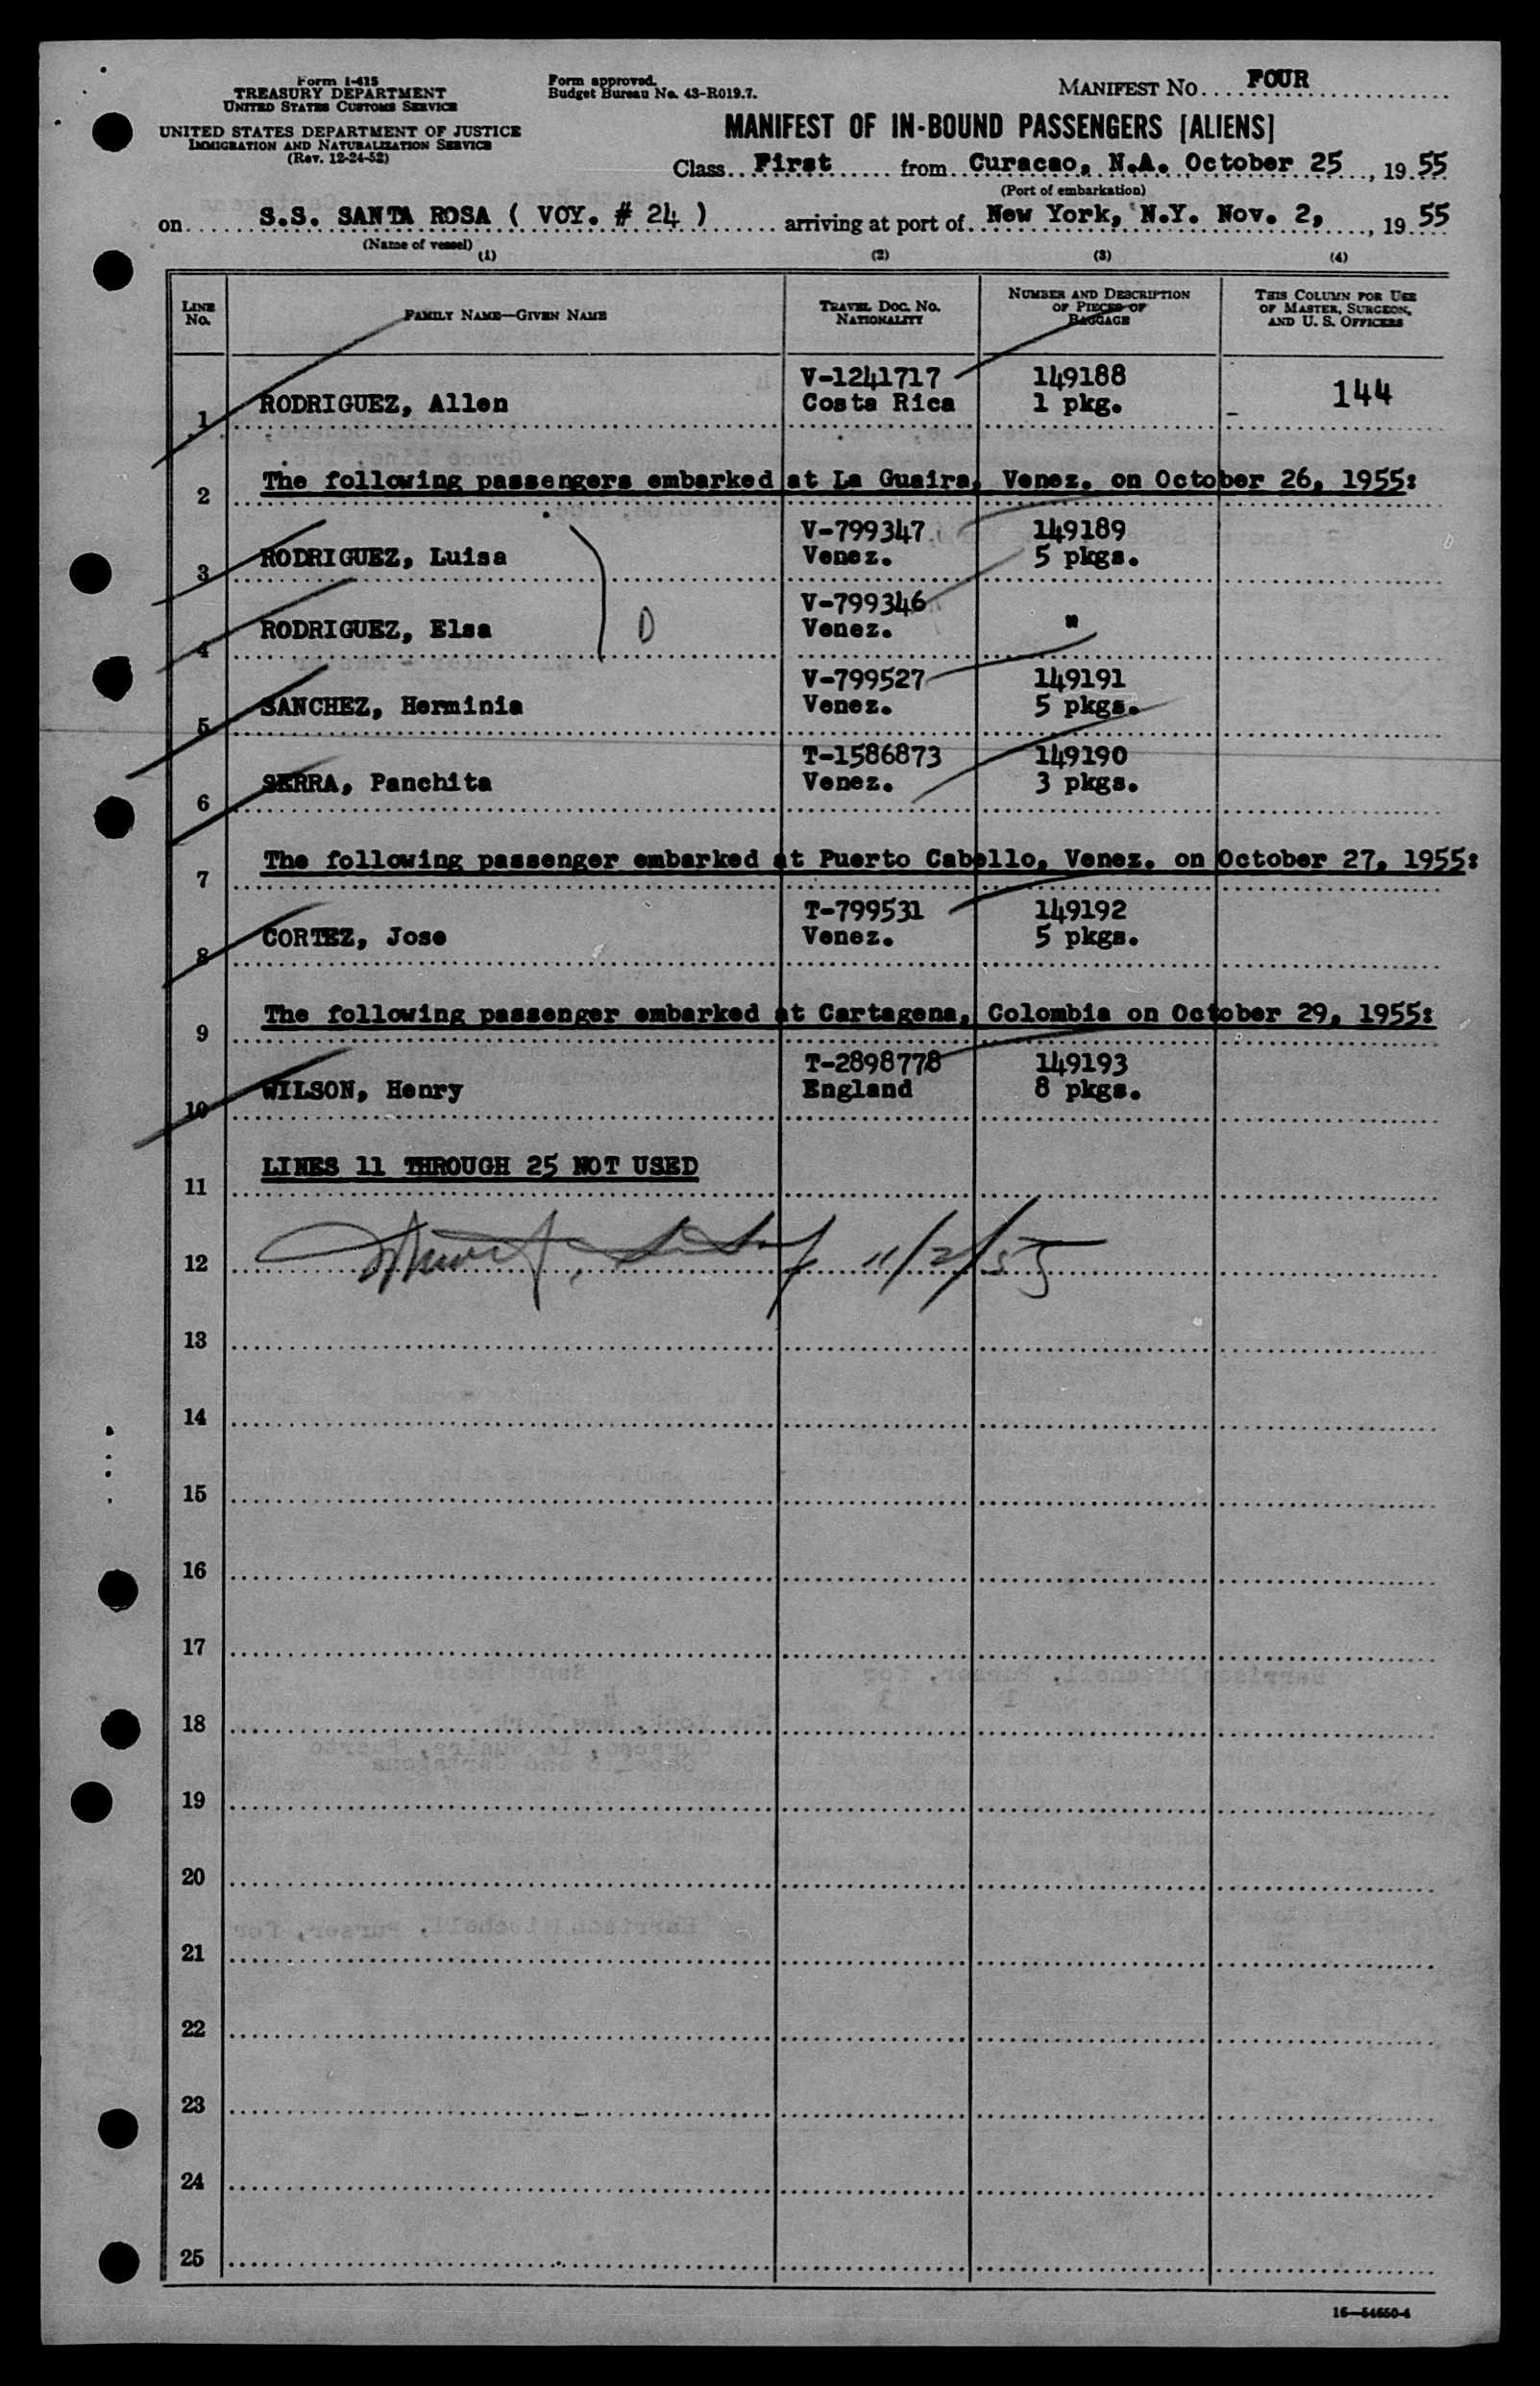 Form I-415
TREASURY DEPARTMENT
UNITED STATES CUSTOMS SERVICE
UNITED STATES DEPARTMENT OF JUSTICE
IMMIGRATION AND NATURALIZATION SERVICE
(Rev. 12-24-52)
Form approved.
Budget Bureau No. 43-R019.7.
MANIFEST NO. FOUR
MANIFEST OF IN-BOUND PASSENGERS [ALIENS]
Class First from Curacao, N.A. October 25, 19 55
(Port of embarkation)
on S.S. SANTA ROSA ( VOY. # 24 ) arriving at port of New York, N.Y. Nov. 2, , 19 55
(Name of vessel)
(1) (2) (3) (4)
LINE No. FAMILY NAME—GIVEN NAME TRAVEL DOC. NO. NATIONALITY NUMBER AND DESCRIPTION OF PIECES OF BAGGAGE THIS COLUMN FOR USE OF MASTER, SURGEON, AND U. S. OFFICERS
V-1241717 149188
1 RODRIGUEZ, Allen Costa Rica 1 pkg. 144
2 The following passengers embarked at La Guaira, Venez. on October 26, 1955:
V-799347 149189
3 RODRIGUEZ, Luisa Venez. 5 pkgs.
V-799346
4 RODRIGUEZ, Elsa D Venez. "
V-799527 149191
5 SANCHEZ, Herminia Venez. 5 pkgs.
T-1586873 149190
6 SERRA, Panchita Venez. 3 pkgs.
7 The following passenger embarked at Puerto Cabello, Venez. on October 27, 1955:
T-799531 149192
8 CORTEZ, Jose Venez. 5 pkgs.
9 The following passenger embarked at Cartagena, Colombia on October 29, 1955:
T-2898778 149193
10 WILSON, Henry England 8 pkgs.
11 LINES 11 THROUGH 25 NOT USED
12 11/2/55
13
14
15
16
17
18
19
20
21
22
23
24
25
16—54650-4